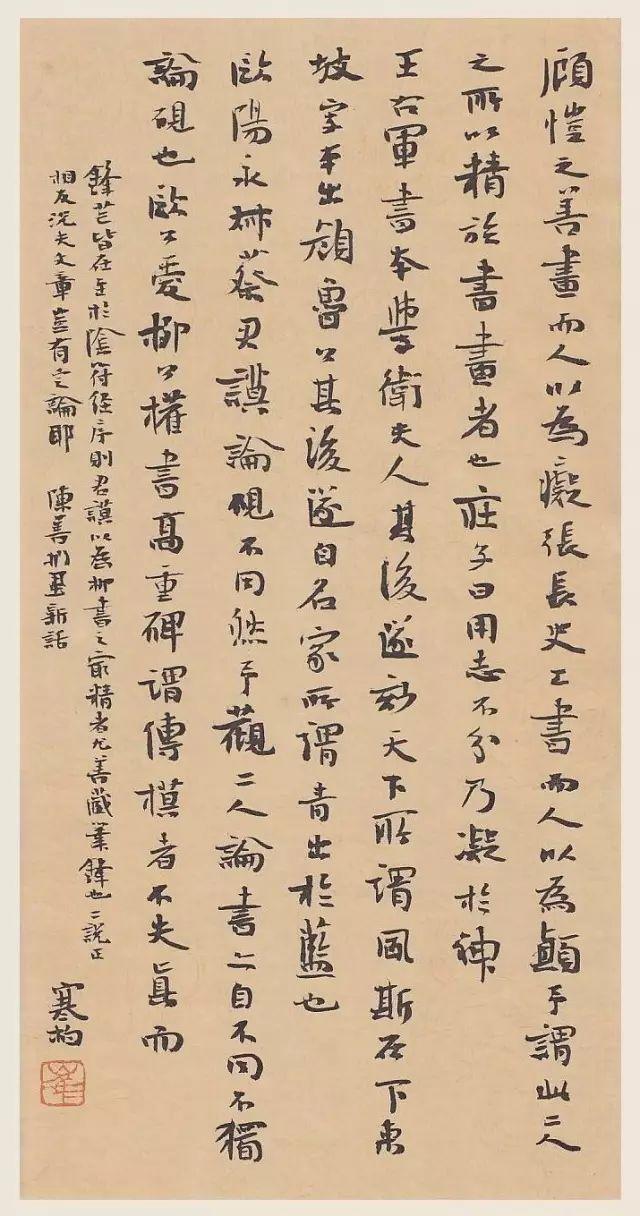 顧愷之善畫而人以為癡張長史工書而人以為顛予謂此二人
之所以精於書畫者也莊子曰用志不分乃凝於神
王右軍書本學衛夫人其後遂妙天下所謂風斯在下東
坡字本出顏魯公其後遂自名家所謂青出於藍也
歐陽永叔蔡君謨論硯不同然予觀二人論書亦自不同不獨
論硯也歐公愛柳公權書高重碑謂傳模者不失真而
鋒芒皆在至於陰符經序則君謨以為柳書之最精者尤善藏筆鋒也二說正
相反況夫文章豈有定論耶 陳善捫虱新話
寒柏